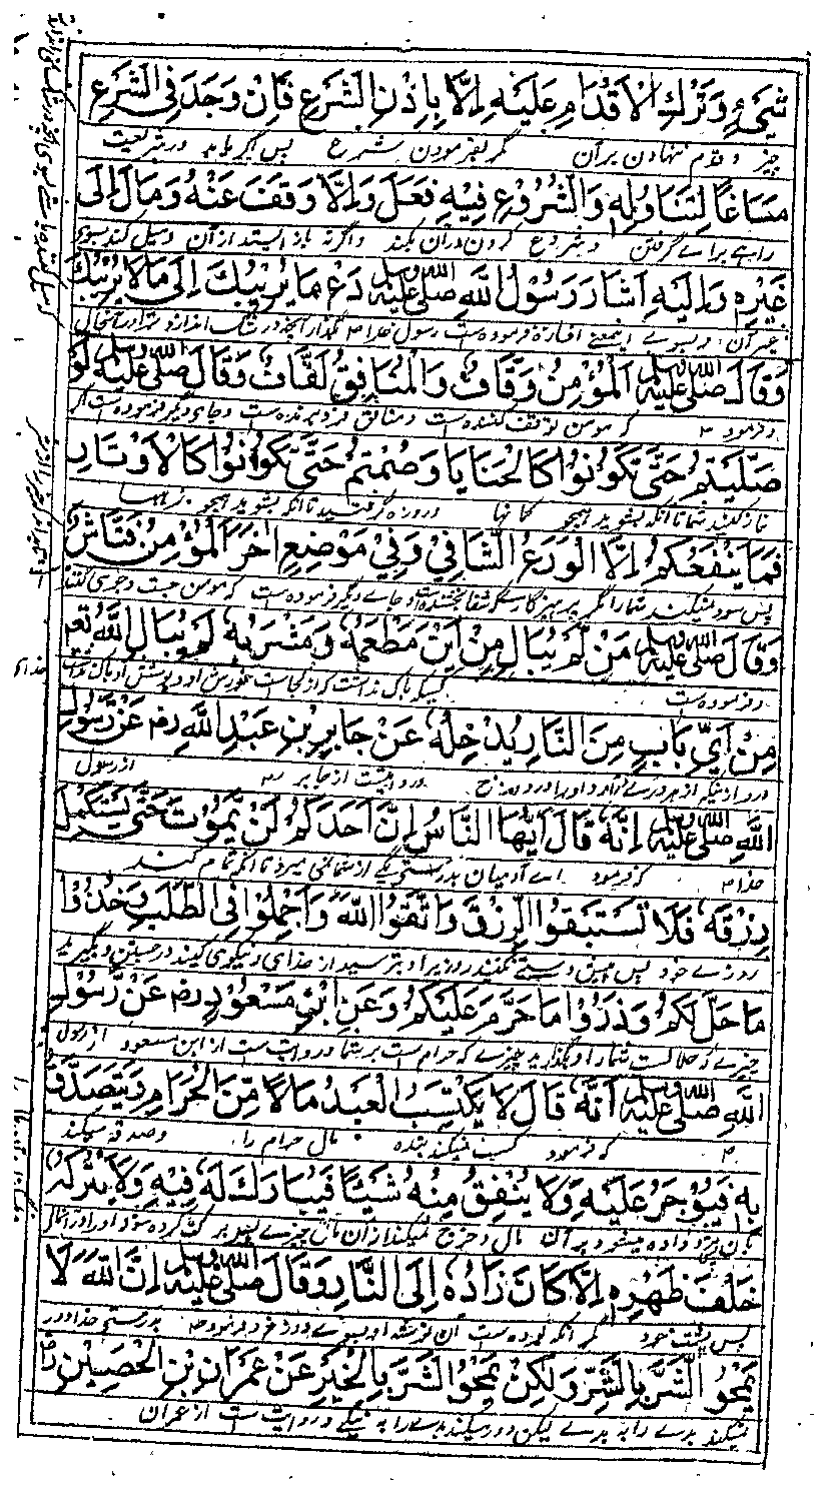 شَيْءٍ وَتَرْكُ الْاَقْدَامِ عَلَيْهِ اِلَّا بِاِذْنِ الشَّرْعِ فَاِنْ وَجَدَ فِی الشَّرْعِ
چیز و قدم نهادن بر آن مگر بفرمودن شرع پس اگر یابد در شریعت
مَسَاغًا لِتَنَاوُلِهٖ وَالشُّرُوْعِ فِيْهِ فَعَلَ وَاِلَّا وَقَفَ عَنْهُ وَمَالَ اِلٰی
راهے براے گرفتن و شروع کردن در آن بکند و اگر نه باز ایستد از آن و میل کند بسوی
غَيْرِهٖ وَاِلَيْهِ اَشَارَ رَسُوْلُ اللّٰهِ صَلَّی اللّٰهُ عَلَيْهِ وَسَلَّمَ دَعْ مَا يُرِيْبُكَ اِلٰی مَا لَا يُرِيْبُكَ
غیر آن و بسوے اینمعنے اشارة فرموده است رسول خدا
وَقَالَ صَلَّی اللّٰهُ عَلَيْهِ وَسَلَّمَ اَلْمُؤْمِنُ وَقَّافٌ وَالْمُنَافِقُ لَقَّافٌ وَقَالَ صَلَّی اللّٰهُ عَلَيْهِ وَسَلَّمَ لَوْ
و فرمود که مومن توقف کننده است و منافق فرو برنده است و جای دیگر فرموده است اگر
صَلَّيْتُمْ حَتّٰی تَكُوْنُوْا كَالْحَنَايَا وَصُمْتُمْ حَتّٰی تَكُوْنُوْا كَالْاَوْتَارِ
نماز کنید شما تا آنکه بشوید همچو کمانها و روزه گرفتید تا آنکه بشوید همچو زهها
فَمَا يَنْفَعُكُمْ اِلَّا الْوَرَعُ الشَّافِيْ وَفِيْ مَوْضِعٍ اٰخَرَ الْمُؤْمِنُ فَتَّاشٌ
پس سود نمیکند شما را مگر پرهیزگارے شفا بخشنده و جاے دیگر فرموده است که مومن
وَقَالَ صَلَّی اللّٰهُ عَلَيْهِ وَسَلَّمَ مَنْ لَمْ يُبَالِ مِنْ اَيْنَ مَطْعَمُهٗ وَمَشْرَبُهٗ لَمْ يُبَالِ اللّٰهُ تَعَ
و فرموده است کسیکه باک نداشت که از کجاست خورش او و نوشش او باک ندارد خدای
مِنْ اَيِّ بَابٍ مِنَ النَّارِ يُدْخِلُهٗ عَنْ جَابِرِ بْنِ عَبْدِ اللّٰهِ رض عَنْ رَّسُوْلِ
در آرد او را در دوزخ و روایت از جابر از رسول
اللّٰهِ صَلَّی اللّٰهُ عَلَيْهِ وَسَلَّمَ اِنَّهٗ قَالَ اَيُّهَا النَّاسُ اِنَّ اَحَدَكُمْ لَنْ يَّمُوْتَ حَتّٰی يَسْتَكْمِلَ
خدا که فرمود اے آدمیان بدرستی یکے از شما نمی میرد تا آنکه تمام کند
رِزْقَهٗ فَلَا تَسْتَبْقُوا الرِّزْقَ وَاتَّقُوا اللّٰهَ وَاَجْمِلُوْا فِی الطَّلَبِ وَخُذُوْا
روزے خود پس روزیرا و بترسید از خدای و نیکوی کنید در جستن و بگیرید
مَا حَلَّ لَكُمْ وَذَرُوْا مَا حَرَّمَ عَلَيْكُمْ وَعَنِ ابْنِ مَسْعُوْدٍ رض عَنْ رَّسُوْلِ
چیزے که حلالست شما را و بگذارید چیزے که حرام است بر شما و روایت است از ابن مسعود از رسول
اللّٰهِ صَلَّی اللّٰهُ عَلَيْهِ وَسَلَّمَ اَنَّهٗ قَالَ لَا يَكْتَسِبُ الْعَبْدُ مَالًا مِّنَ الْحَرَامِ وَيَتَصَدَّقُ
که فرمود کسب نمیکند بنده مال حرام را و صدقه میکند
بِهٖ فَيُؤْجَرُ عَلَيْهِ وَلَا يُنْفِقُ مِنْهُ شَيْئًا فَيُبَارَكُ لَهٗ فِيْهِ وَلَا يَتْرُكُهٗ
بآن مال و خرج نمیکند از آن مال چیزے پس برکت کرده شود او را در آنمال
خَلْفَ ظَهْرِهٖ اِلَّا كَانَ زَادَهٗ اِلَی النَّارِ وَقَالَ صَلَّی اللّٰهُ عَلَيْهِ وَسَلَّمَ اِنَّ اللّٰهَ لَا
پس پشت خود مگر آنکه بوده است آن توشه او بسوے دوزخ و فرموده بدرستی خدا دور
يَمْحُو الشَّرَّ بِالشَّرِّ وَلٰكِنْ يَمْحُو الشَّرَّ بِالْخَيْرِ عَنْ عِمْرَانَ بْنِ الْحُصَيْنِ رض
نمیکند بدے را به بدے لیکن دور میکند بدے را به نیکے و روایت است از عمران